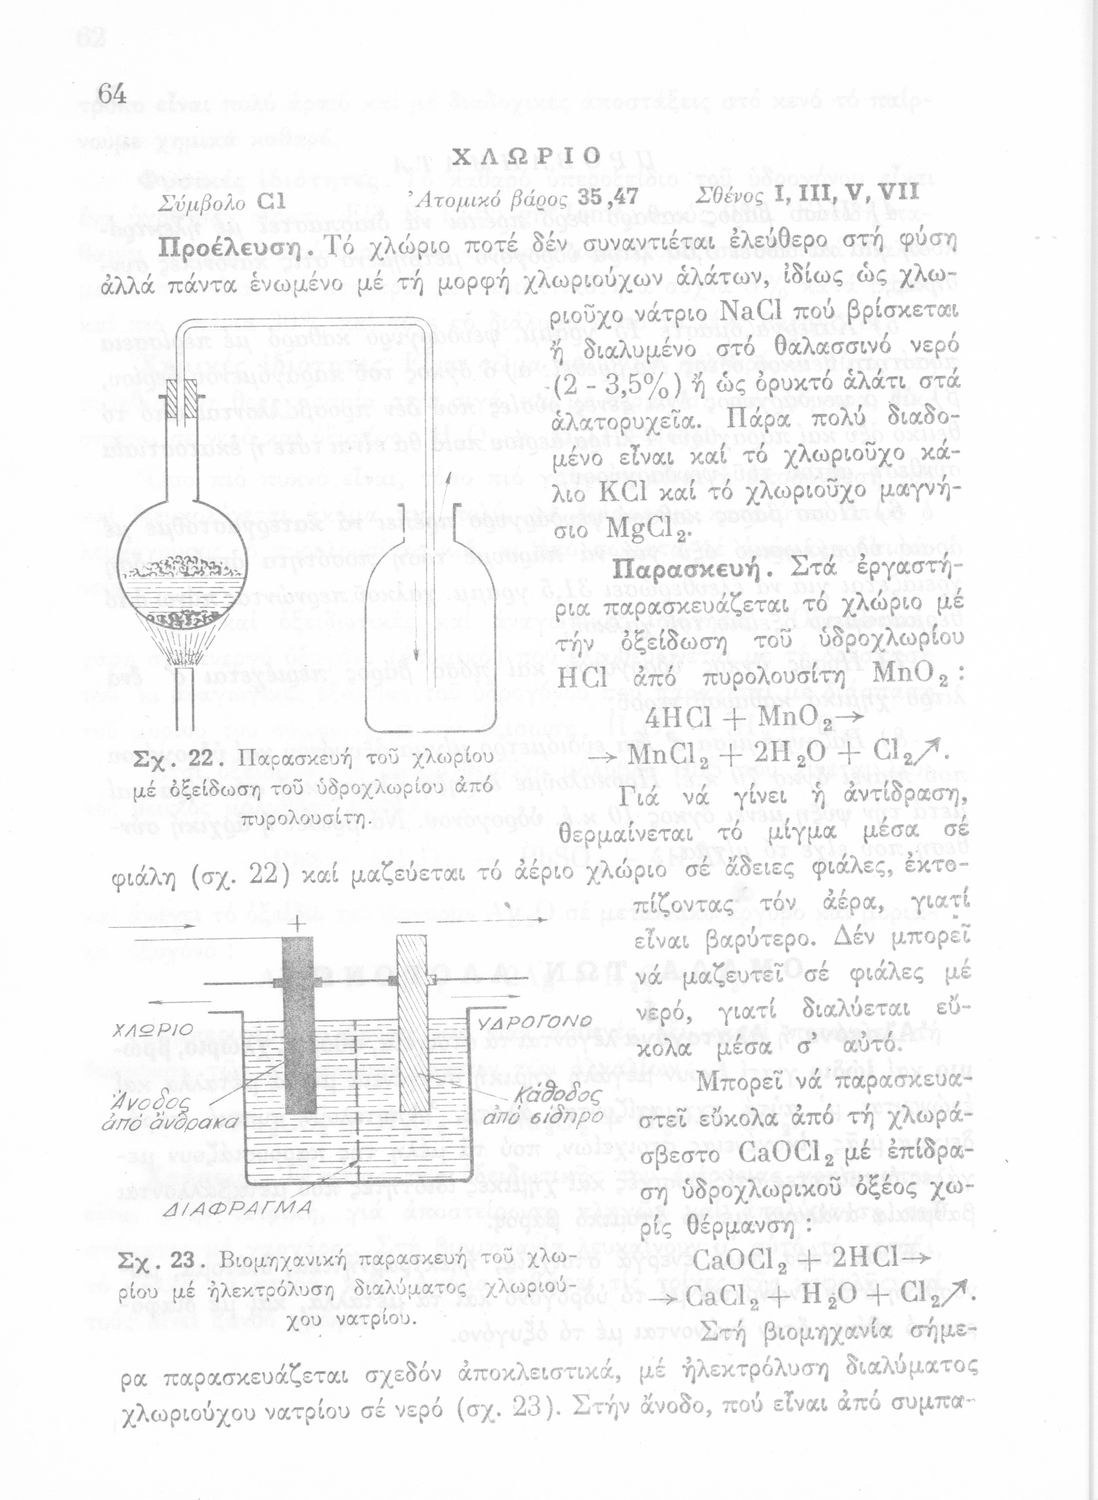 64
ΧΛΩΡΙΟ
Σύμβολο Cl Ἀτομικό βάρος 35,47 Σθένος I, III, V, VII
Προέλευση. Τό χλώριο ποτέ δέν συναντιέται ἐλεύθερο στή φύση
ἀλλά πάντα ἑνωμένο μέ τή μορφή χλωριούχων ἁλάτων, ἰδίως ὡς χλω-
ριοῦχο νάτριο NaCl πού βρίσκεται
ἤ διαλυμένο στό θαλασσινό νερό
(2 - 3,5%) ἤ ὡς ὀρυκτό ἁλάτι στά
ἁλατορυχεῖα. Πάρα πολύ διαδο-
μένο εἶναι καί τό χλωριοῦχο κά-
λιο KCl καί τό χλωριοῦχο μαγνή-
σιο MgCl₂.
Παρασκευή. Στά ἐργαστή-
ρια παρασκευάζεται τό χλώριο μέ
τήν ὀξείδωση τοῦ ὑδροχλωρίου
HCl ἀπό πυρολουσίτη MnO₂ :
4HCl + MnO₂→
→ MnCl₂ + 2H₂O + Cl₂↗.
Σχ. 22. Παρασκευή τοῦ χλωρίου
μέ ὀξείδωση τοῦ ὑδροχλωρίου ἀπό
πυρολουσίτη.
Γιά νά γίνει ἡ ἀντίδραση,
θερμαίνεται τό μίγμα μέσα σέ
φιάλη (σχ. 22) καί μαζεύεται τό ἀέριο χλώριο σέ ἄδειες φιάλες, ἐκτο-
πίζοντας τόν ἀέρα, γιατί
εἶναι βαρύτερο. Δέν μπορεῖ
νά μαζευτεῖ σέ φιάλες μέ
νερό, γιατί διαλύεται εὔ-
κολα μέσα σ' αὐτό.
Μπορεῖ νά παρασκευα-
στεῖ εὔκολα ἀπό τή χλωρά-
σβεστο CaOCl₂ μέ ἐπίδρα-
ση ὑδροχλωρικοῦ ὀξέος χω-
ρίς θέρμανση :
CaOCl₂ + 2HCl→
→ CaCl₂ + H₂O + Cl₂↗.
+
ΧΛΩΡΙΟ
ΥΔΡΟΓΟΝΟ
Ἄνοδος
ἀπό ἄνθρακα
Κάθοδος
ἀπό σίδηρο
ΔΙΑΦΡΑΓΜΑ
Σχ. 23. Βιομηχανική παρασκευή τοῦ χλω-
ρίου μέ ἠλεκτρόλυση διαλύματος χλωριού-
χου νατρίου.
Στή βιομηχανία σήμε-
ρα παρασκευάζεται σχεδόν ἀποκλειστικά, μέ ἠλεκτρόλυση διαλύματος
χλωριούχου νατρίου σέ νερό (σχ. 23). Στήν ἄνοδο, πού εἶναι ἀπό συμπα-